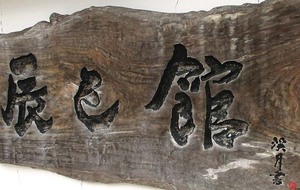 辰巳館
月書